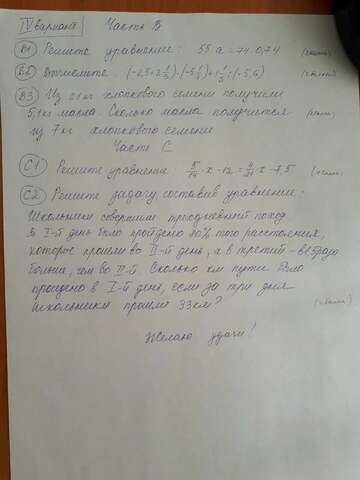 IV вариант Часть В
В1 Решите уравнение: 55 а = 74 0,74
В2 Вычислите
В3 Из 21 кг хлопкового семени получили
5,1 кг масла. Сколько масла получится
из 7 кг хлопкового семени
Часть С
С1 Решите уравнение x - 12 = x - 7,5
С2 Решите задачу, составив уравнение:
Школьники совершили трехдневный поход
В I-й день было пройдено 80% того расстояния,
которое прошли во II-й день, а в третий - в 1,5 раза
больше, чем во II-й. Сколько км пути было
пройдено в I-й день, если за три дня
школьники прошли 33 км?
Желаю удачи!